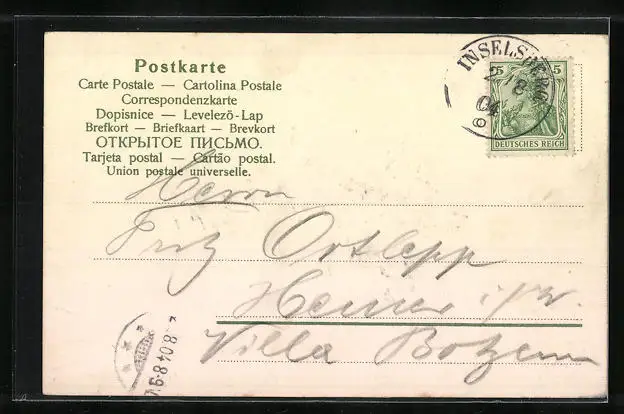 Postkarte
Carte Postale — Cartolina Postale
Correspondenzkarte
Dopisnice — Levelező-Lap
Brefkort — Briefkaart — Brevkort
ОТКРЫТОЕ ПИСЬМО.
Tarjeta postal — Cartão postal.
Union postale universelle.
INSELSBERG
5 5
8
04
DEUTSCHES REICH
Herrn
Fritz Ortlepp
Hemer i/W.
Villa